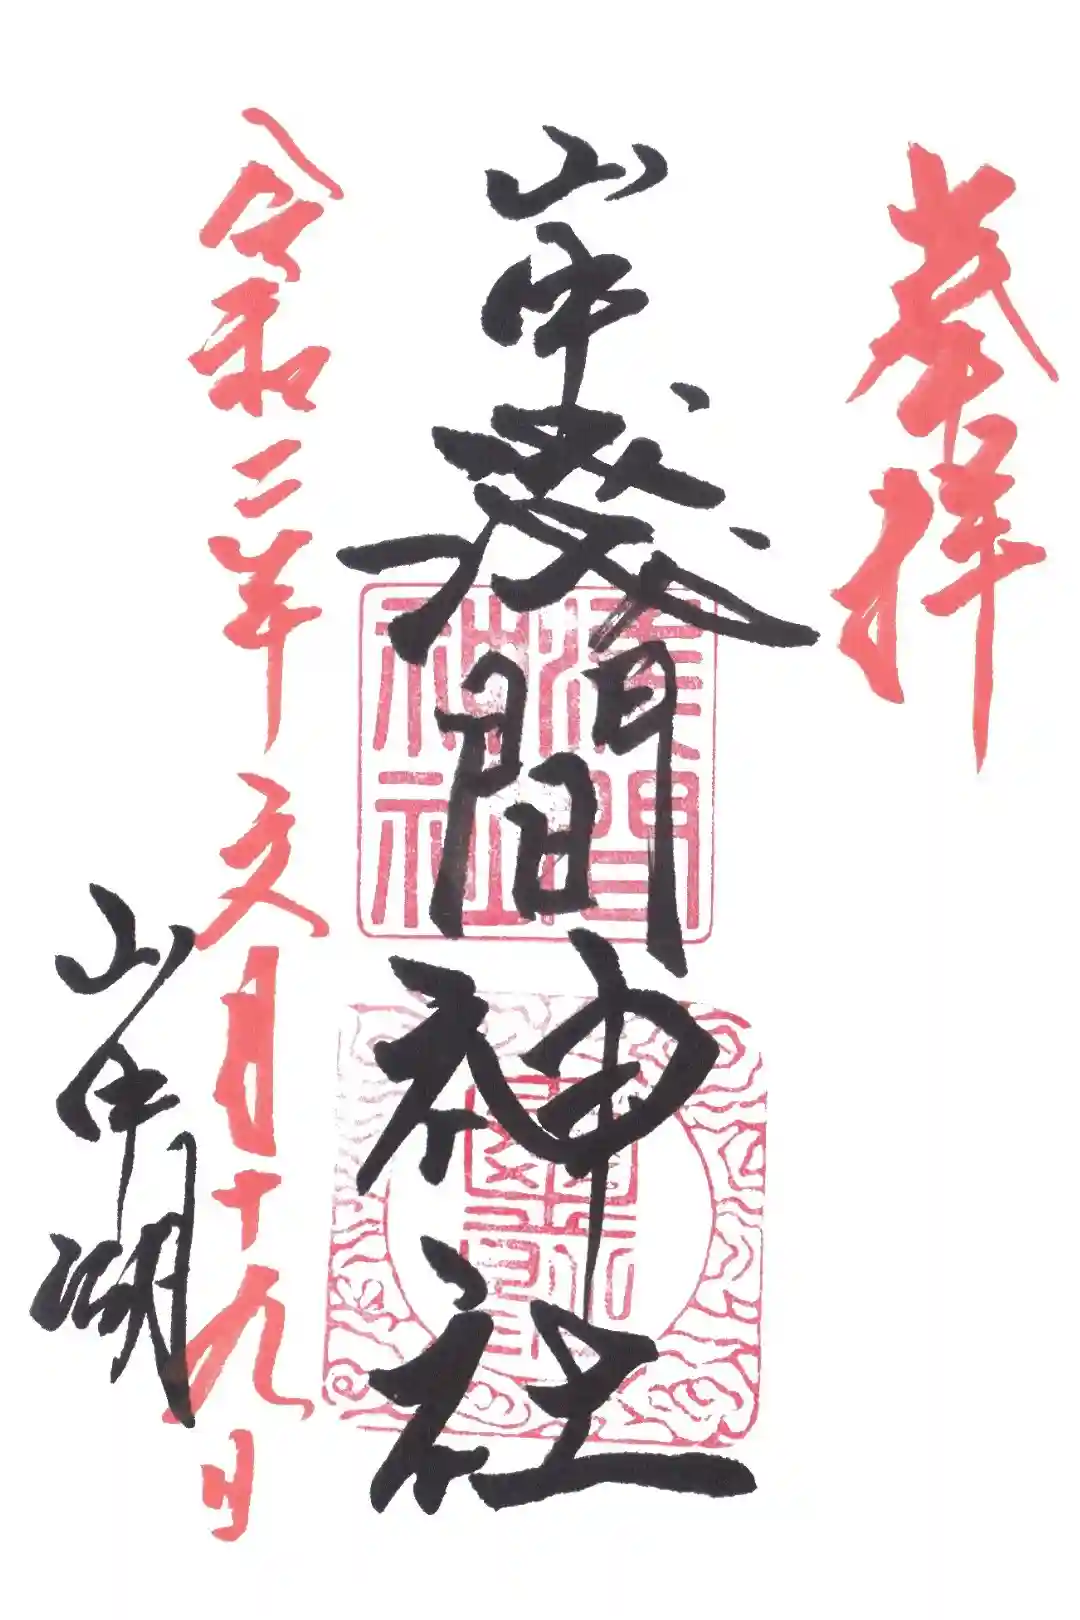 奉拝
山中淺間神社
淺間神社
令和二年文月十九日
山中湖